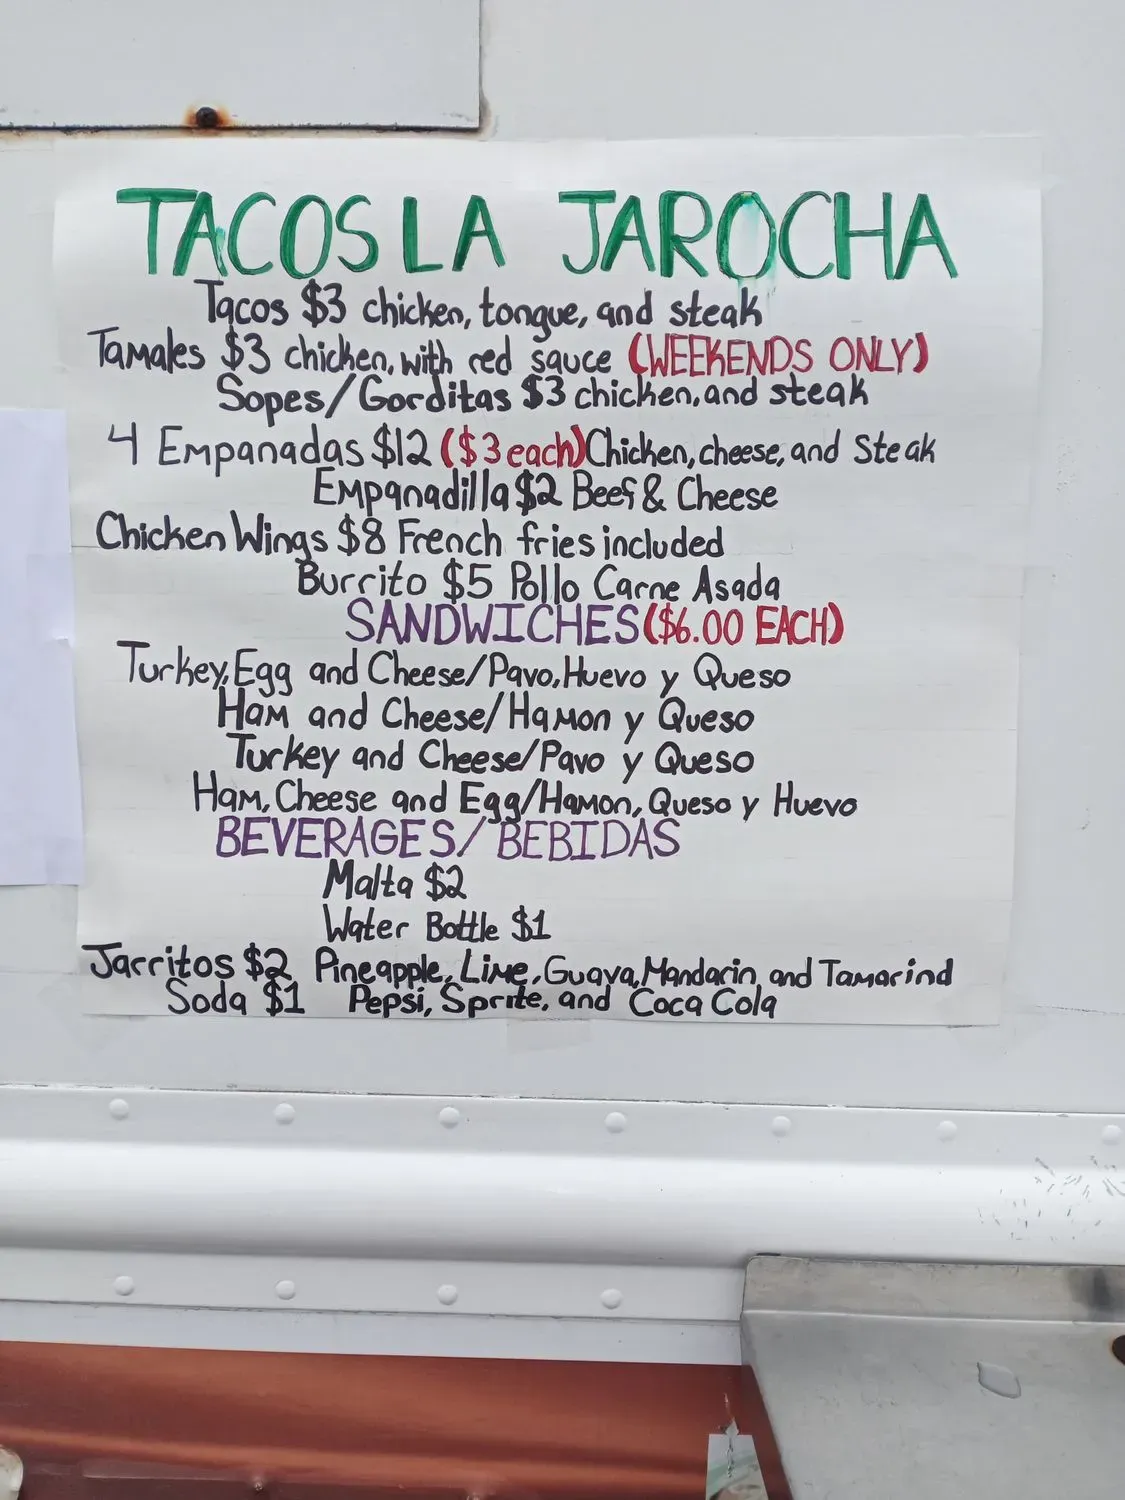 TACOS LA JAROCHA
Tacos $3 chicken, tongue, and steak
Tamales $3 chicken, with red sauce (WEEKENDS ONLY)
Sopes/Gorditas $3 chicken, and steak
4 Empanadas $12 ($3 each) Chicken, cheese, and Steak
Empanadilla $2 Beef & Cheese
Chicken Wings $8 French fries included
Burrito $5 Pollo Carne Asada
SANDWICHES ($6.00 EACH)
Turkey, Egg and Cheese/Pavo, Huevo y Queso
Ham and Cheese/Hamon y Queso
Turkey and Cheese/Pavo y Queso
Ham, Cheese and Egg/Hamon, Queso y Huevo
BEVERAGES/BEBIDAS
Malta $2
Water Bottle $1
Jarritos $2 Pineapple, Lime, Guava, Mandarin, and Tamarind
Soda $1 Pepsi, Sprite, and Coca Cola